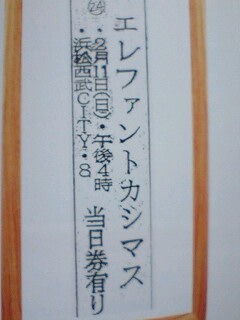 エレファントカシマス
・2月11日(日)・午後4時
・浜松西武CITY・8
当日券有り